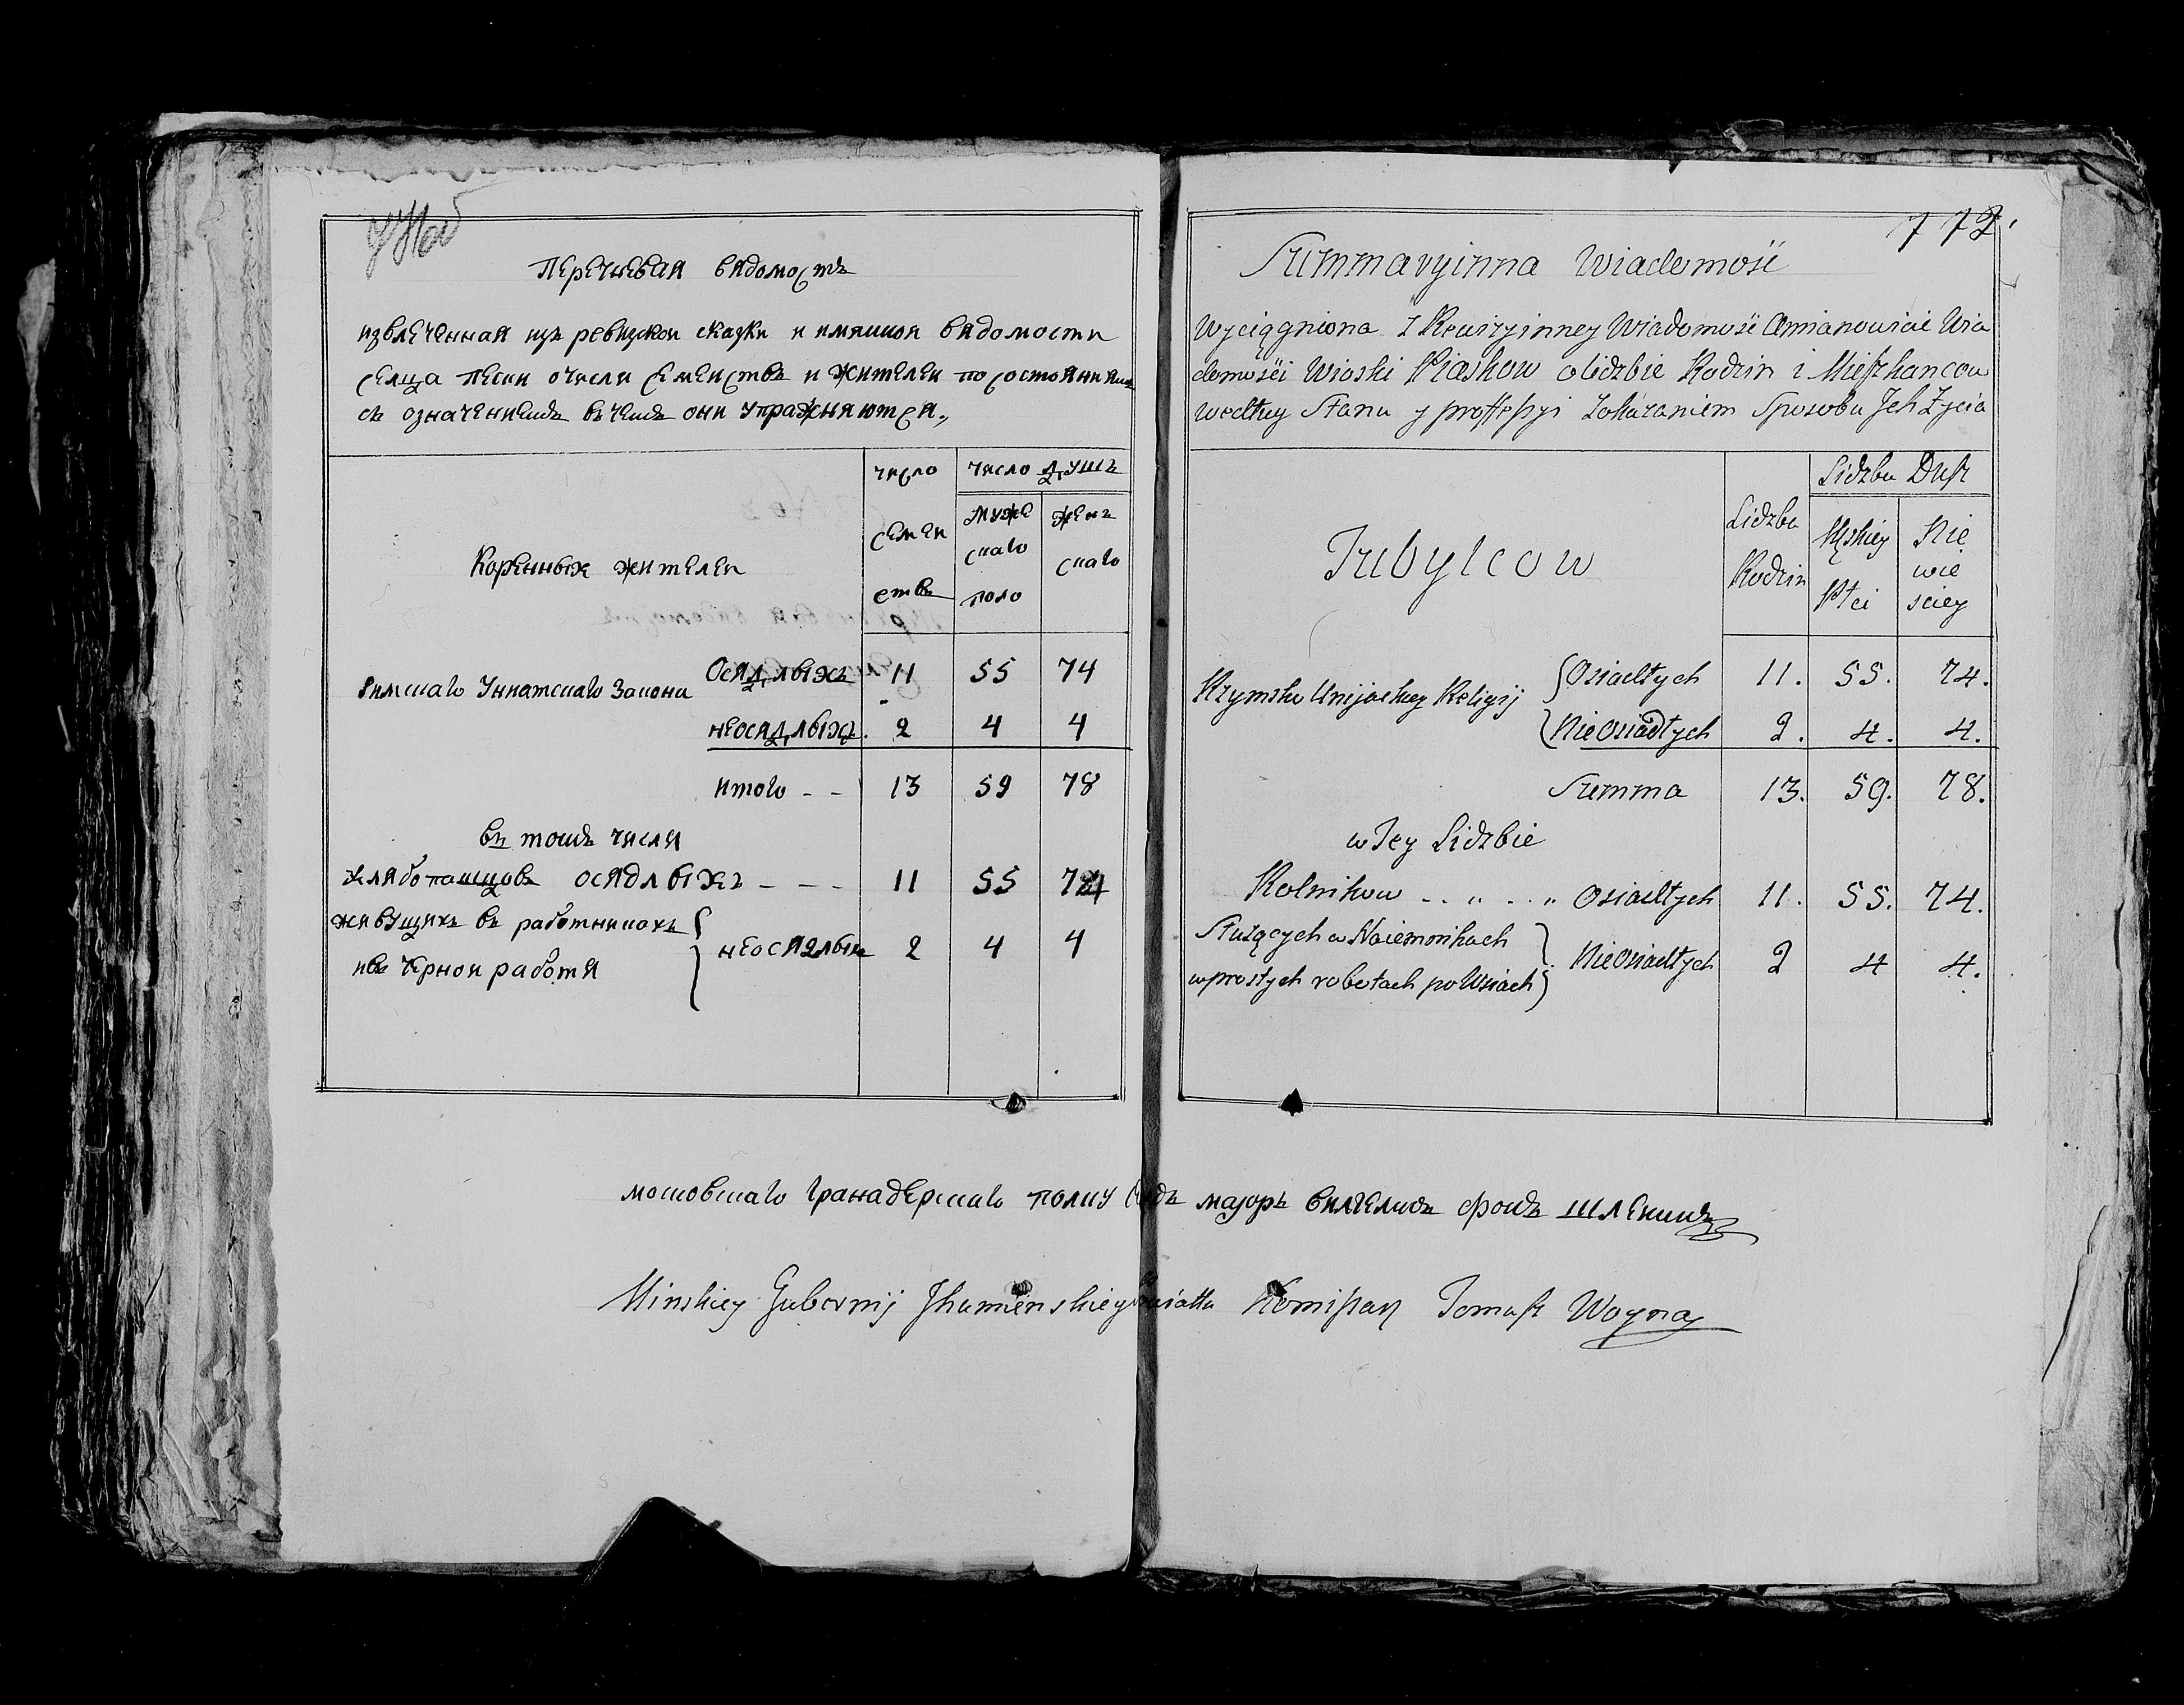 Перечневая вядомость
извлеченная изъ ревиской сказки и имянной вядомости
селца Пески о числи семействъ и жителей по состояниямъ
съ означениемъ въ чемъ они упражняются.,
число
семей
ствъ
число душъ
муже
скаго
поло
женъ
скаго
Коренныхъ жителей
Римскаго Униатскаго Закона
Осядлыхъ 11 55 74
неосядлыхъ. 2 4 4
итого - - 13 59 78
въ томъ числя
хлябопашцовъ осядлыхъ - - - 11 55 74
живущихъ въ работникахъ
и въ чёрной работя
неосядлыхъ 2 4 4
772
Summaryinna Wiadomość
Wyciągniona z Rewizyinney Wiadomośći Amianowicie Wia
domośći Wioski Piaskow o lidzbie Rodzin i Mieszkancow
wedłuy Stanu y proffessyi zokazaniem Sposobu Jch Życia
Tubylcow
Lidzba
Rodzin
Lidzba Dusz
Męskiey
Płci
Nie
wie
sciey
Rzymsko Unijackiey Religij
Osiadłych 11. 55. 74.
Nieosiadłych 2. 4. 4.
Summa 13. 59. 78.
w Tey Lidzbie
Rolnikow .. „ .. „ Osiadłych 11. 55. 74.
Służących w Naiemnikach
w prostych robotach po Wsiach
Nieosiadłych 2 4 4.
московскаго гранадерскаго полку маjоръ вилгелмъ фонъ
Minskiey Gubernij Jhumenskiego Powiatu Komissarz Tomasz Woyna